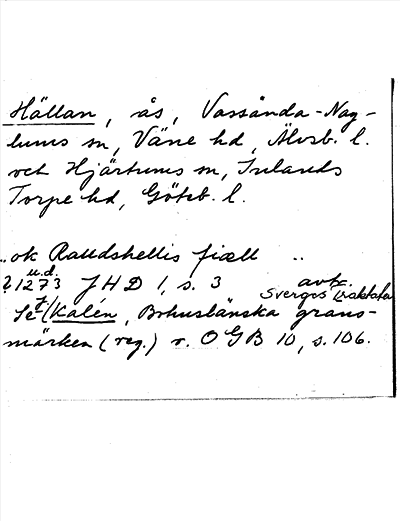 Hällan, ås, Vassända-Nag-
lums sn, Väne hd, Älvsb. l.
och Hjärtums sn, Inlands
Torpe hd, Göteb. l.
.. ok Raudshellis fiæll ..
u.d.
? 1273 JHD 1, s. 3 avtr.
Sverges traktater
Se (Kalén, Bohuslänska gräns-
märken (reg.) r. OGB 10, s. 106.